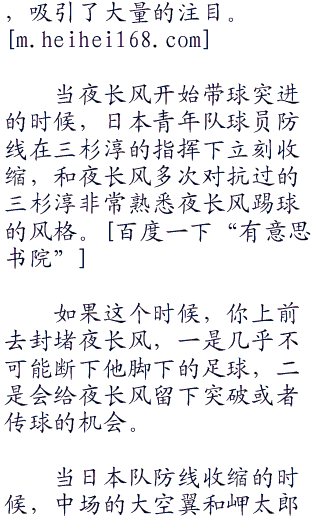 ，吸引了大量的注目。
[m.heihei168.com]
当夜长风开始带球突进
的时候，日本青年队球员防
线在三杉淳的指挥下立刻收
缩，和夜长风多次对抗过的
三杉淳非常熟悉夜长风踢球
的风格。[百度一下“有意思
书院”]
如果这个时候，你上前
去封堵夜长风，一是几乎不
可能断下他脚下的足球，二
是会给夜长风留下突破或者
传球的机会。
当日本队防线收缩的时
候，中场的大空翼和岬太郎